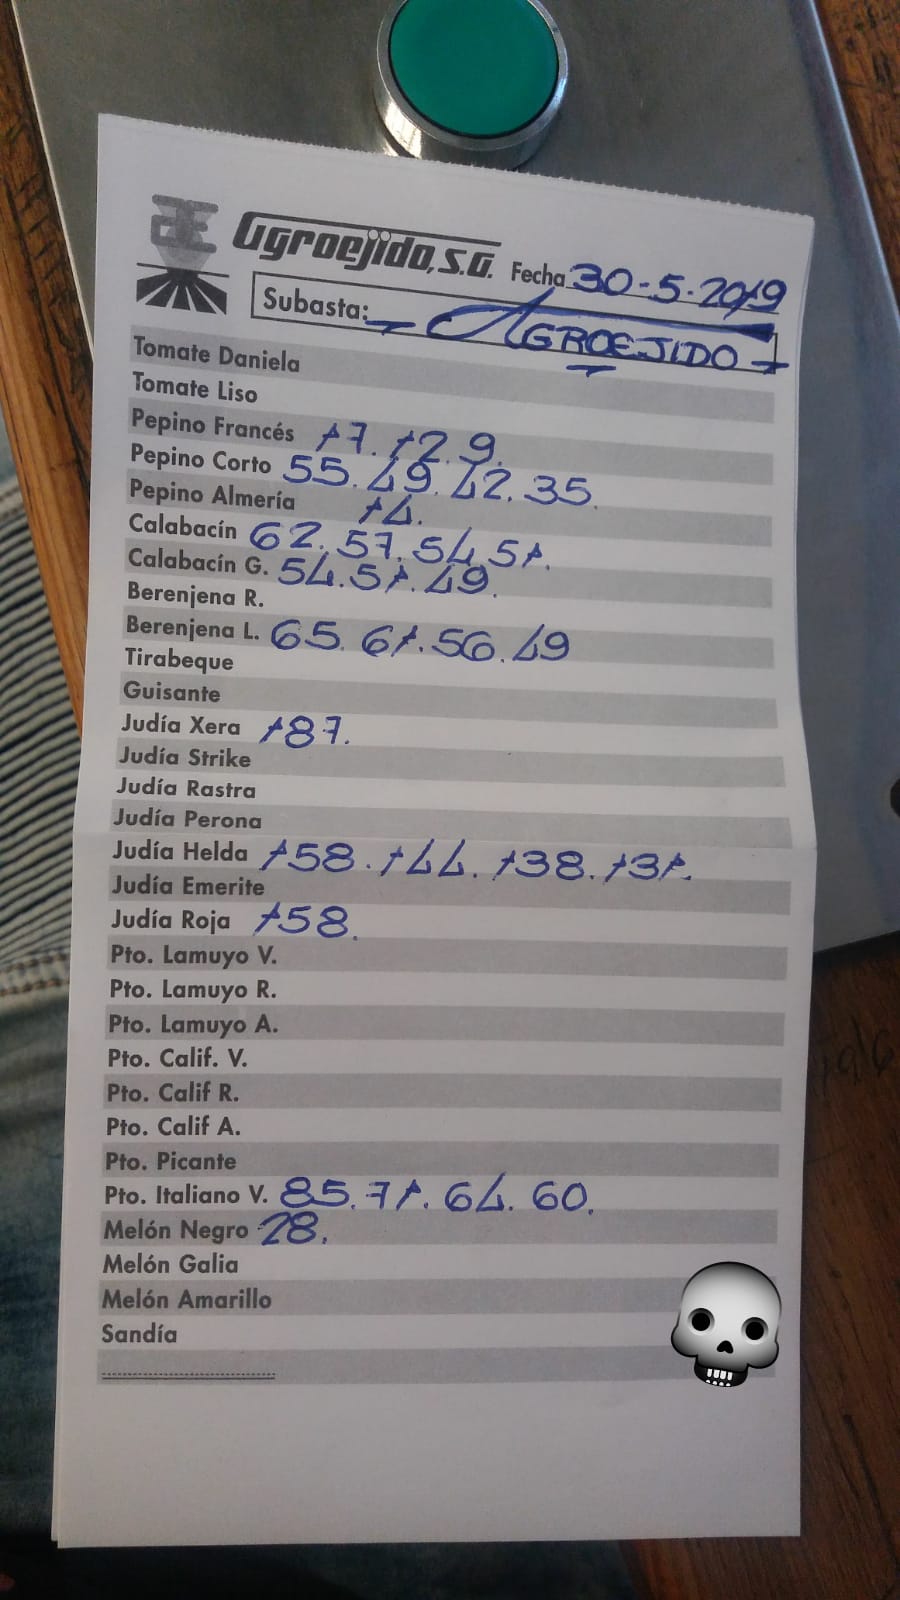 Agroejido, S.G. Fecha 30-5-2019
Subasta: AGROEJIDO
Tomate Daniela
Tomate Liso
Pepino Francés 17. 12. 9.
Pepino Corto 55. 49. 42. 35.
Pepino Almería 14.
Calabacín 62. 57. 54. 51.
Calabacín G. 54. 51. 49.
Berenjena R.
Berenjena L. 65. 61. 56. 49
Tirabeque
Guisante
Judía Xera 187.
Judía Strike
Judía Rastra
Judía Perona
Judía Helda 158. 144. 138. 131.
Judía Emerite
Judía Roja 158.
Pto. Lamuyo V.
Pto. Lamuyo R.
Pto. Lamuyo A.
Pto. Calif. V.
Pto. Calif R.
Pto. Calif A.
Pto. Picante
Pto. Italiano V. 85. 71. 64. 60.
Melón Negro 28.
Melón Galia
Melón Amarillo
Sandía